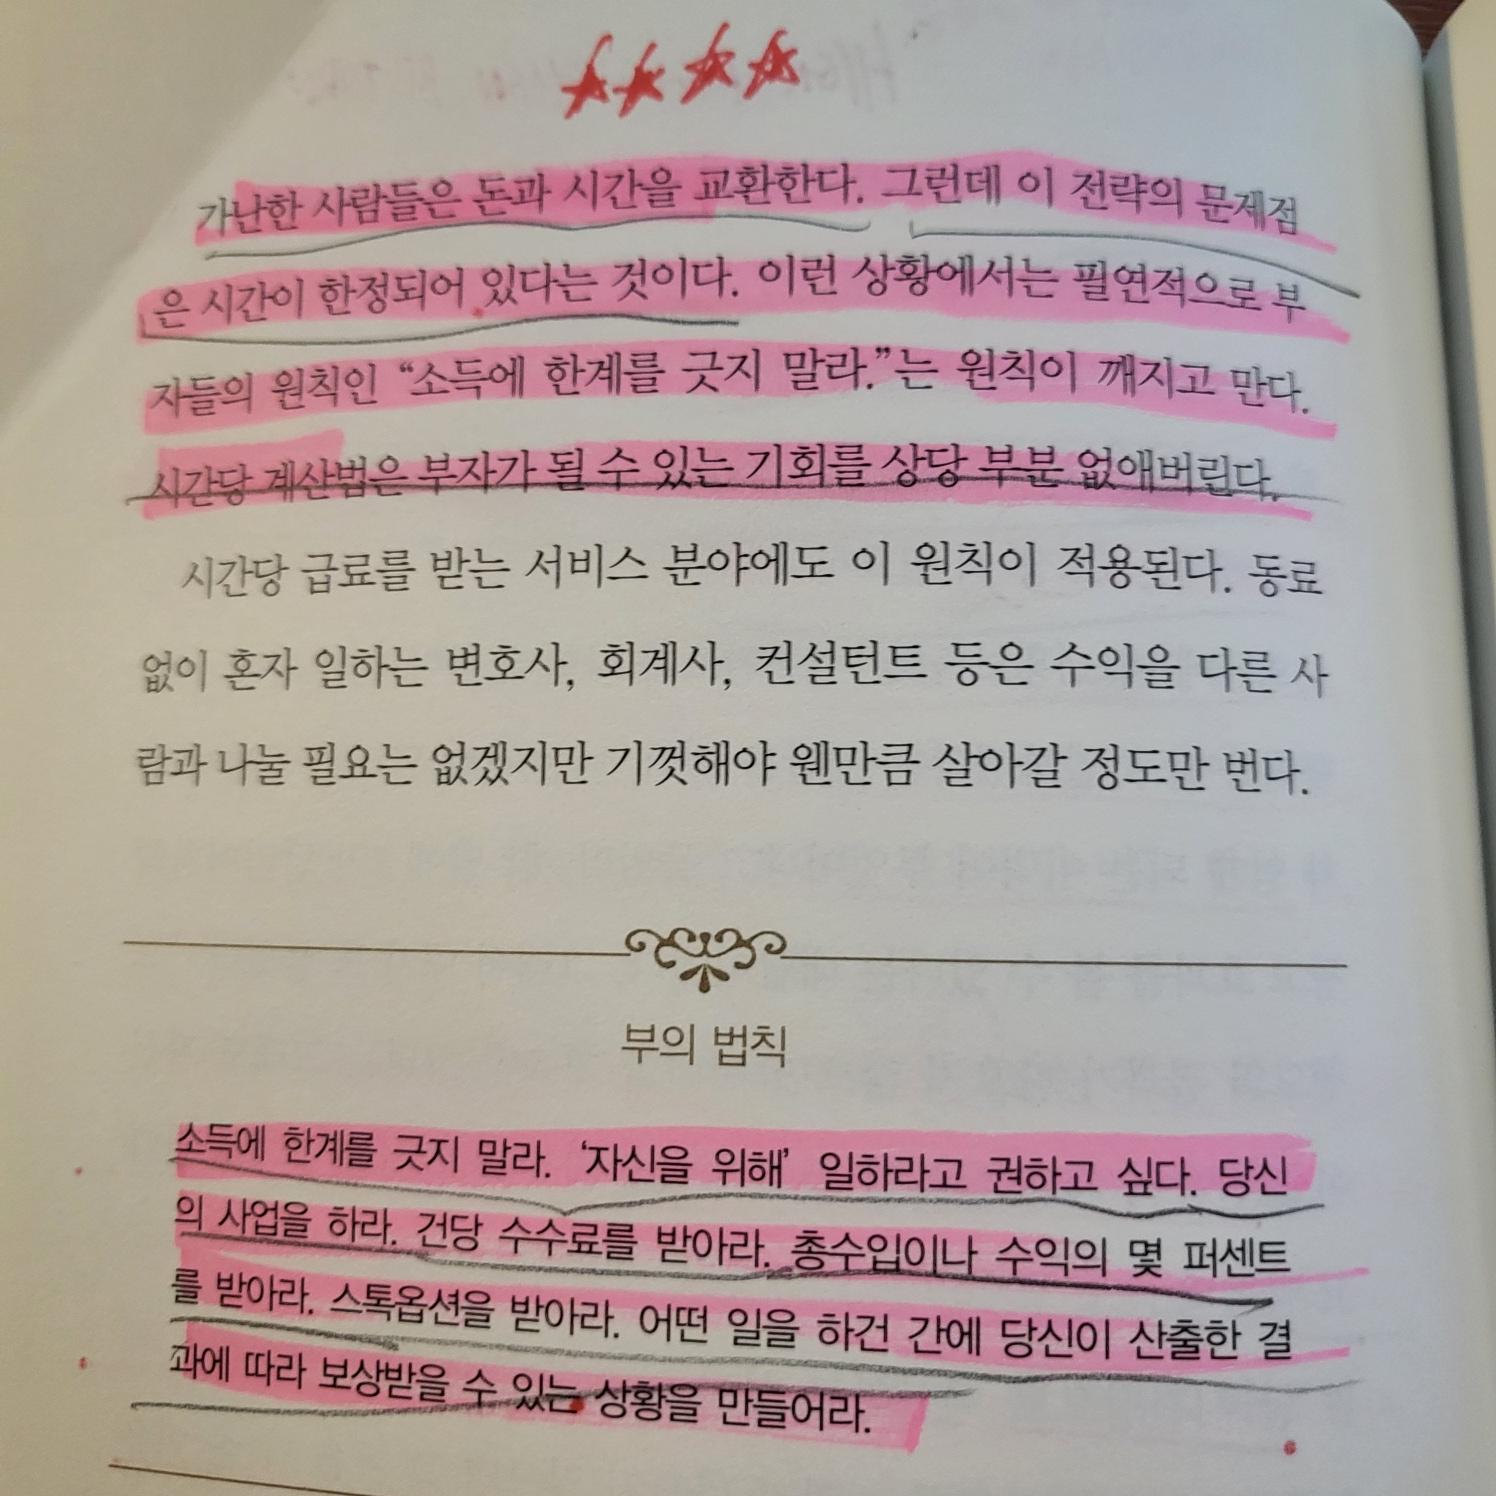 가난한 사람들은 돈과 시간을 교환한다. 그런데 이 전략의 문제점
은 시간이 한정되어 있다는 것이다. 이런 상황에서는 필연적으로 부
자들의 원칙인 “소득에 한계를 긋지 말라.”는 원칙이 깨지고 만다.
시간당 계산법은 부자가 될 수 있는 기회를 상당 부분 없애버린다.
시간당 급료를 받는 서비스 분야에도 이 원칙이 적용된다. 동료
없이 혼자 일하는 변호사, 회계사, 컨설턴트 등은 수익을 다른 사
람과 나눌 필요는 없겠지만 기껏해야 웬만큼 살아갈 정도만 번다.
부의 법칙
소득에 한계를 긋지 말라. ‘자신을 위해’ 일하라고 권하고 싶다. 당신
의 사업을 하라. 건당 수수료를 받아라. 총수입이나 수익의 몇 퍼센트
를 받아라. 스톡옵션을 받아라. 어떤 일을 하건 간에 당신이 산출한 결
과에 따라 보상받을 수 있는 상황을 만들어라.